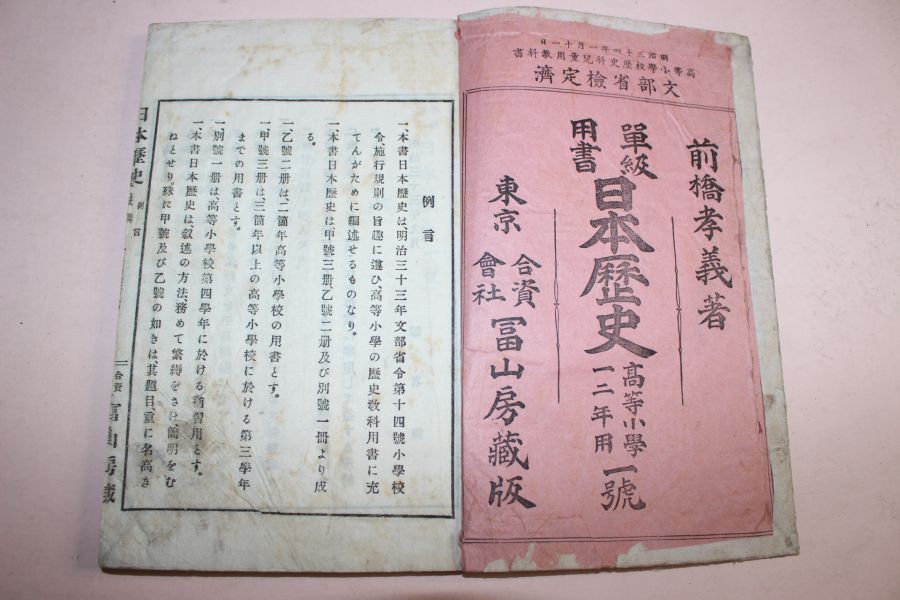 明治三十四年一月十一日
高等小學校歷史科兒童用敎科書
文部省檢定濟
前橋孝義著
單級
用書
日本歷史
高等小學
一二年用
一號
東京
合資
會社
冨山房藏版
例言
一、本書日本歷史は、明治三十三年文部省令第十四號小學校
令施行規則の旨趣に遵ひ、高等小學の歷史敎科用書に充
てんがために編述せるものなり。
一、本書日本歷史は、甲號三册、乙號二册及び別號一冊より成
る。
一、乙號二册は、二箇年高等小學校の用書とす。
一、甲號三册は、三箇年以上の高等小學校に於ける第三學年
までの用書とす。
一、別號一册は、高等小學校第四學年に於ける補習用とす。
一、本書日本歷史は、敍述の方法、務めて繁縟をさけ、簡明をむ
ねとせり。殊に甲號及び乙號の如きは、其題目重に名高き
日本歷史
例言
合資
冨山房藏